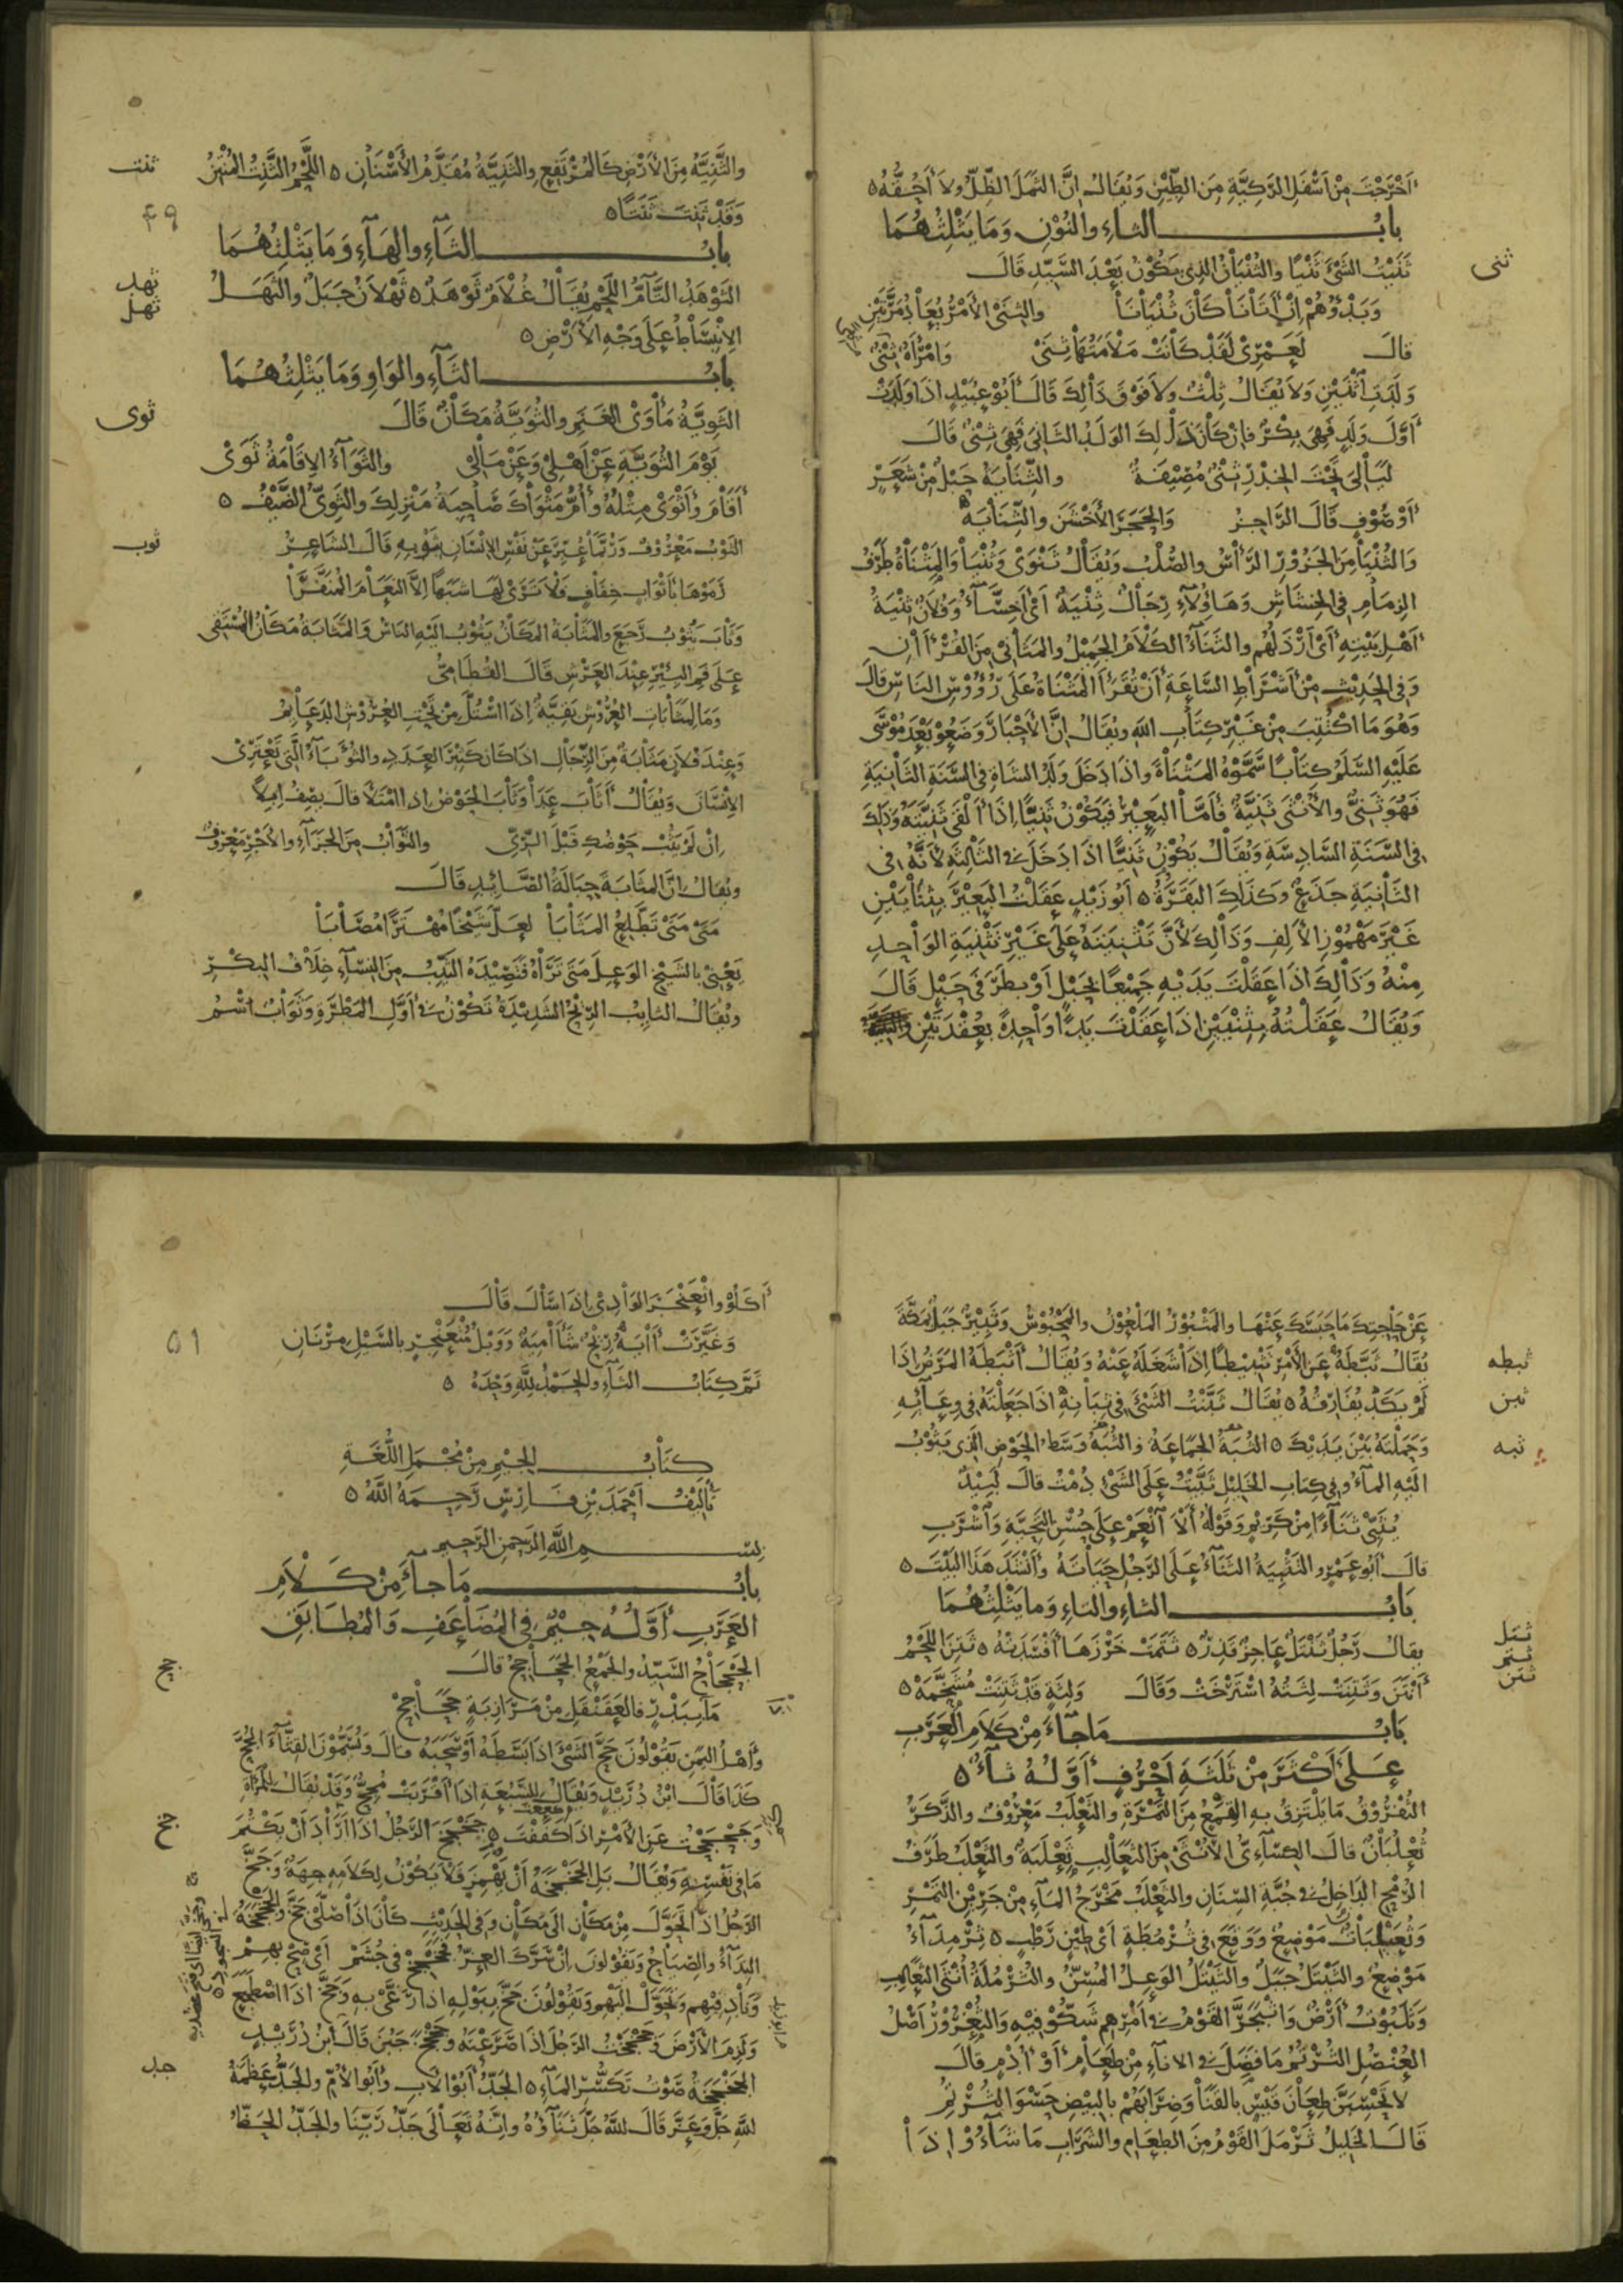 أَخْرَجْتَ مِنْ أَسْفَلِ الرَّكِيَّةِ مِنَ الطِّيْنِ وَيُقَالُ إِنَّ الثَّمَلَ الظِّلُّ وَلَا أَحُقُّهُ ٥
بابُ الثاءِ والنُّوْنِ وَمَا يَثْلِثُهُمَا
ثنى
ثَنَيْتُ الشَّيْءَ ثَنْيًا والثُّنْيَانُ الذي يَكُوْنُ بَعْدَ السَّيِّدِ قَالَ
وَبَدْؤُهُمْ إِنْ أَتَانَا كَانَ ثُنْيَانَا والثِّنَى الأَمْرُ يُعَادُ مَرَّتَيْنِ
قَالَ لَعَمْرِيْ لَقَدْ كَانَتْ مَلَامَتُهَا ثِنَى وَامْرَأَةٌ ثِنْيٌ
وَلَدَتِ اثْنَيْنِ وَلَا يُقَالُ ثِلْثٌ وَلَا فَوْقَ ذَلِكَ قَالَ أَبُوْ عُبَيْدٍ اذَا وَلَدَتْ
أَوَّلَ وَلَدٍ فَهِيَ بِكْرٌ فَإِنْ كَانَ ذَلِكَ الوَلَدُ الثَّانِيَ فَهِيَ ثِنْيٌ قَالَ
لَيَالِيَ تَحْتَ الخِدْرِ ثِنْيٌ مُصِيْفَةٌ والثِّنَايَةُ حَبْلٌ مِنْ شَعَرٍ
أَوْ صُوْفٍ قَالَ الرَّاجِزُ وَالحَجَرَ الأَخْشَنَ والثِّنَايَهْ
وَالثُّنْيَا مِنَ الجَزُوْرِ الرَّأْسُ والصُّلْبُ وَيُقَالُ ثَنْوَى وَثُنْيَا وَالمِثْنَاةُ طَرَفُ
الزِمَامِ فِي الخِشَاشِ وَهَاؤُلَآءِ رِجَالٌ ثِنْيَةٌ أَيْ أَخِسَّآءُ وَفُلَانٌ ثِنْيَةُ
أَهْلِ بَيْتِهِ أَيْ أَرْذَلُهُم والثَّنَآءُ الكَلَامُ الجَمِيْلُ والمَثَانِي مِنَ القُرْأَانِ
وَفِي الحَدِيْثِ مِنْ أَشْرَاطِ السَّاعَةِ أَنْ تُقْرَأَ المَثْنَاةُ عَلَى رُؤُوْسِ النَاسِ قالَ
وَهُوَ مَا اكْتُتِبَ مِنْ غَيْرِ كِتَابِ اللهِ وَيُقَالُ إِنَّ الأَحْبَارَ وَضَعُوْا بَعْدَ مُوْسَى
عَلَيْهِ السَّلَمُ كِتَابًا سَمَّوْهُ المَثْنَاةَ وَاذَا دَخَلَ وَلَدُ الشَاةِ فِي السَّنَةِ الثَّانِيَةِ
فَهُوَ ثَنِيٌّ والأُنْثَى ثَنِيَّةٌ فَأَمَّا البَعِيْرُ فَيَكُوْنُ ثَنِيًّا إِذَا أَلْقَى ثَنِيَّتَهُ وَذَلِكَ
فِي السَّنَةِ السَّادِسَةِ وَيُقَالُ يَكُوْنُ ثَنِيًّا اذَا دَخَلَ فِي الثَالِثَةِ لأَنَّهُ فِي
الثَّانِيَةِ جَذَعٌ وَكَذَلِكَ البَقَرَةُ ٥ أَبُو زَيْدٍ عَقَلْتُ البَعِيْرَ بِثِنَايَيْنِ
غَيْرَ مَهْمُوْزِ الأَلِفِ وَذَلِكَ لأَنَّ تَثْنِيَتَهُ عَلَى غَيْرِ تَثْنِيَةِ الوَاحِدِ
مِنْهُ وَذَلِكَ اذَا عَقَلْتَ يَدَيْهِ جَمِيْعًا بِحَبْلٍ أَوْ بِطَرَفَيْ حَبْلٍ قَالَ
وَيُقَالُ عَقَلْتُهُ بِثِنْيَيْنِ اذَا عَقَلْتَ يَدًا وَاحِدَةً بِعُقْدَتَيْنِ
ثنت
والثَّنِيَّةُ مِنَ الأَرْضِ كَالمُرْتَفِعِ والثَنِيَّةُ مُقَدَّمُ الأَسْنَانِ ٥ اللَّحْمُ الثَّنِتُ المُنْتِنُ
وَقَدْ ثَنِتَ ثَنَتًا ٥
٤٩
بابُ الثَاءِ والهَآءِ وَمَا يَثْلِثُهُمَا
ثهد
ثهل
الثَوْهَدُ التَّآمُّ اللَّحْمِ يُقَالُ غُلَامٌ ثَوْهَدٌ ٥ ثَهْلَانُ جَبَلٌ والثَهَلُ
الِانْبِسَاطُ عَلَى وَجْهِ الأَرْضِ ٥
بابُ الثَآءِ والوَاوِ وَمَا يَثْلِثُهُمَا
ثوى
الثَوِيَّةُ مَأْوَى الغَنَمِ والثُوَيَّةُ مَكَانٌ قَالَ
يَوْمَ الثُوَيَّةِ عَنْ أَهْلِيْ وَعَنْ مَالِيْ والثَوَآءُ الإِقَامَةُ ثَوَى
أَقَامَ وَأَثْوَى مِثْلُهُ وَأُمُّ مَثْوَاكَ صَاحِبَةُ مَنْزِلِكَ والثَوِيُّ الضَّيْفُ ٥
ثوب
الثَوْبُ مَعْرُوْفٌ وَرُبَّمَا عُبِّرَ عَنْ نَفْسِ الإِنْسَانِ بِثَوْبِهِ قَالَ الشَاعِرُ
رَمَوْهَا بِأَثْوَابٍ خِفَافٍ فَلَا تَرَى لَهَا شَبَهًا إِلَّا النَعَامَ المُنَفَّرَا
وَثَابَ يَثُوْبُ رَجَعَ والمَثَابَةُ المَكَانُ يَثُوْبُ الَيْهِ النَاسُ وَالمَثَابَةُ مَكَانُ المُسْتَقِي
عَلَى فَمِ البِئْرِ عِنْدَ العَرْشِ قَالَ القُطَامِيُّ
وَمَا لِمَثَابَاتِ العُرُوْشِ بَقِيَّةٌ إِذَا اسْتُلَّ مِنْ تَحْتِ العُرُوْشِ الدَعَائِمُ
وَعِنْدَ فُلَانٍ مَثَابَةٌ مِنَ الرِّجَالِ اذَا كَانَ كَثِيْرَ العَدَدِ والثُؤَبَآءُ الَّتِي تَعْتَرِيْ
الإِنْسَانَ وَيُقَالُ وَثَابَ الحَوْضُ إِذَا امْتَلَأَ قَالَ يَصِفُ إِبِلًا
إِنْ لَمْ يَثُبْ حَوْضُكِ قَبْلَ الرِّيِّ والثَّوَابُ مِنَ الجَزَآءِ والأَجْرِ مَعْرُوفٌ
وَيُقَالُ إِنَّ المَثَابَةَ حِبَالَةُ الصَّائِدِ قَالَ
مَتَى مَتَى تَطَّلِعُ المَثَابَا لَعَلَّ شَيْخًا مُهْتَرًا مُصَابَا
يَعْنِي بالشَيْخِ الوَعِلَ مَتَى تَرَاهُ فَتَصِيْدَهُ الثَيِّبُ مِنَ النِسَآءِ خِلَافُ البِكْرِ
ويُقَالُ الثايِبُ الرِيْحُ الشَدِيْدَةُ تَكُوْنُ فِي أَوَّلِ المَطَرِ وَثَوَابُ اسْمُ
عَنْ حَاجَتِكَ مَا حَبَسَكَ عَنْهَا والمَثْبُوْرُ المَلْعُوْنُ والمَحْبُوْسُ وَثَبِيْرٌ جَبَلٌ بِمَكَّةَ
ثبطه
يُقَالُ ثَبَّطَهُ عَنِ الأَمْرِ تَثْبِيْطًا إِذَا شَغَلَهُ عَنْهُ وَيُقَالُ أَثْبَطَهُ المَرَضُ إِذَا
ثبن
لَمْ يَكَدْ يُفَارِقُهُ ٥ يُقَالُ ثَبَنْتُ الشَّيْءَ فِي ثِبَانِهِ اذَا جَعَلْتَهُ فِي وِعَآئِهِ
ثبه
وَحَمَلْتَهُ بَيْنَ يَدَيْكَ ٥ الثُبَةُ الجَمَاعَةُ والثُبَةُ وَسَطُ الحَوْضِ الَّذِي يَثُوْبُ
الَيْهِ المَاءُ وَفِي كِتَابِ الخَلِيْلِ ثَبَّيْتُ عَلَى الشَّيْءِ دُمْتُ قَالَ لَبِيْدٌ
يُثَبِّي ثَنَآءً مِنْ كَرِيْمٍ وَقَوْلُهُ أَلَا انْعَمْ عَلَى حُسْنِ التَّحِيَّةِ وَاشْرَبِ
قَالَ أَبُو عَمْرٍو التَثْبِيَةُ الثَنَآءُ عَلَى الرَجُلِ حَيَاتَهُ وَأَنْشَدَ هَذَا البَيْتَ ٥
بَابُ الثاءِ والتاءِ وَمَا يَثْلِثُهُمَا
ثتل
ثتم
ثتن
يقالُ رَجُلٌ ثَنْتَلٌ عَاجِزٌ قَذِرٌ ٥ ثَتَمَتْ خَرْزَهَا أَفْسَدَتْهُ ٥ ثَتِنَ اللَّحْمُ
أَنْتَنَ وَثَتِنَتْ لِثَتُهُ اسْتَرْخَتْ وَقَالَ وَلِثَةٍ قَدْ ثَتِنَتْ مُشَخَّمَهْ ٥
بَابُ مَا جَآءَ مِنْ كَلَامِ العَرَبِ
عَلَى أَكْثَرَ مِنْ ثَلَثَةِ أَحْرُفٍ أَوَّلُهُ ثَآءٌ ٥
الثُفْرُوْقُ مَا يَلْتَزِقُ بِهِ القِمَعُ مِنَ التَمْرَةِ والثَعْلَبُ مَعْرُوْفٌ والذَّكَرُ
ثُعْلُبَانٌ قَالَ الكِسَآءِيُّ الأُنْثَى مِنَ الثَعَالِبِ ثَعْلَبَةٌ والثَعْلَبُ طَرَفُ
الرُمْحِ الدَاخِلُ فِي جُبَّةِ السِنَانِ والثَعْلَبُ مَخْرَجُ المَاءِ مِنْ جَرِيْنِ التَمْرِ
وَثُعَيْلِبَاتٌ مَوْضِعٌ وَوَقَعَ فِي ثُرْمُطَةٍ أَيْ طِيْنٍ رَطْبٍ ٥ ثَرْمَدَآءُ
مَوْضِعٌ والثَيْتَلُ جَبَلٌ والثَيْتَلُ الوَعِلُ المُسِنُّ والثُرْمُلَةُ أُنْثَى الثَعَالِبِ
أَرْضٌ وَاثْبَجَرَّ القَوْمُ فِي أَمْرِهِمْ شَكُّوْا فِيْهِ وَالثُعْرُوْرُ أَصْلُ
العُنْصُلِ الثُرْتُمُ مَا فَضَلَ فِي الانَآءِ مِنْ طَعَامٍ أَوْ أُدْمٍ قَالَ
لَا تَحْسِبَنَّ طِعَانَ قَيْسٍ بِالقَنَا وَضِرَابَهُمْ بِالبِيْضِ حَسْوَ الثُرْتُمِ
قَالَ الخَلِيْلُ ثَرْمَلَ القَوْمُ مِنَ الطَعَامِ والشَرَابِ مَا شَآءُوْا إِذَا
أَكَلُوْا وَاثْعَنْجَرَ الوَادِيْ إِذَا سَالَ قَالَ
٥١
تَمَّ كِتَابُ الثَآءِ والحَمْدُ لِلَّهِ وَحْدَهُ ٥
كِتَابُ الجِيْمِ مِنْ مُجْمَلِ اللُّغَةِ
تَأْلِيْفُ أَحْمَدَ بْنِ فَارِسٍ رَحِمَهُ اللَّهُ ٥
بِسْمِ اللَّهِ الرَحْمَنِ الرَحِيمِ
بابُ مَا جَآءَ مِنْ كَلَامِ
العَرَبِ أَوَّلُهُ جِيْمٌ فِي المُضَاعَفِ وَالمُطَابَقِ
جح
الجَحْجَاحُ السَيِّدُ والجَمْعُ الجَحَاجِحُ قَالَ
مَاذَا بِبَدْرٍ فَالعَقَنْقَلِ مِنْ مَرَازِبَةٍ جَحَاجِحْ
وَأَهْلُ اليَمَنِ يَقُوْلُوْنَ جَحَّ الشَيْءَ اذَا بَسَطَهُ أَوْ سَحَبَهُ قَالَ وَيُسَمُّوْنَ القِثَّاءَ الجُحَّ
كَذَا قَالَ ابْنُ دُرَيْدٍ وَيُقَالُ لِلسَّبُعَةِ إِذَا أَقْرَبَتْ مُجِحٌّ وَقَدْ يُقَالُ لِلْمَرْأَةِ
جخ
وَجَحْجَحْتُ عَنِ الأَمْرِ اذَا كَفَفْتَ ٥ جَخْجَخَ الرَجُلُ اذَا أَرَادَ أَنْ يَكْتُمَ
مَا فِي نَفْسِهِ وَيُقَالُ بَلِ الجَخْجَخَةُ أَنْ يُهَمِزَ فَلَا يَكُوْنُ لِكَلَامِهِ جِهَةٌ وَجَخَّ
الرَجُلُ اذَا تَحَوَّلَ مِنْ مَكَانٍ الَى مَكَانٍ وَفِي الحَدِيْثِ كَانَ اذَا صَلَّى جَخَّ والجَخْجَخَةُ
النِدَآءُ والصِيَاحُ وَيَقُوْلُونَ إِنْ سَرَّكَ العِزُّ فَجَخْجِخْ فِي جُشَمْ أَيْ صِحْ بِهِمْ
وَنَادِ فِيْهِمْ وَتَحَوَّلْ الَيْهِمْ وَيَقُوْلُونَ جَخَّ بِبَوْلِهِ اذَا رَغَّى بِهِ وَجَخَّ اذَا اضْطَجَعَ
وَلَزِمَ الأَرْضَ وَجَخْجَخْتُ الرَجُلَ اذَا صَرَعْتَهُ وَجَخْجَخَ جَبُنَ قَالَ ابْنُ دُرَيْدٍ
جد
الجَخْجَخَةُ صَوْتُ تَكَسُّرِ المَآءِ ٥ الجَدُّ أَبُوْ الأَبِ وَأَبُو الأُمِّ والجَدُّ عَظَمَةُ
اللَّهِ جَلَّ وَعَزَّ قَالَ اللَّهُ جَلَّ ثَنَاؤُهُ وَأَنَّهُ تَعَالَى جَدُّ رَبِّنَا والجَدُّ الحَظُّ